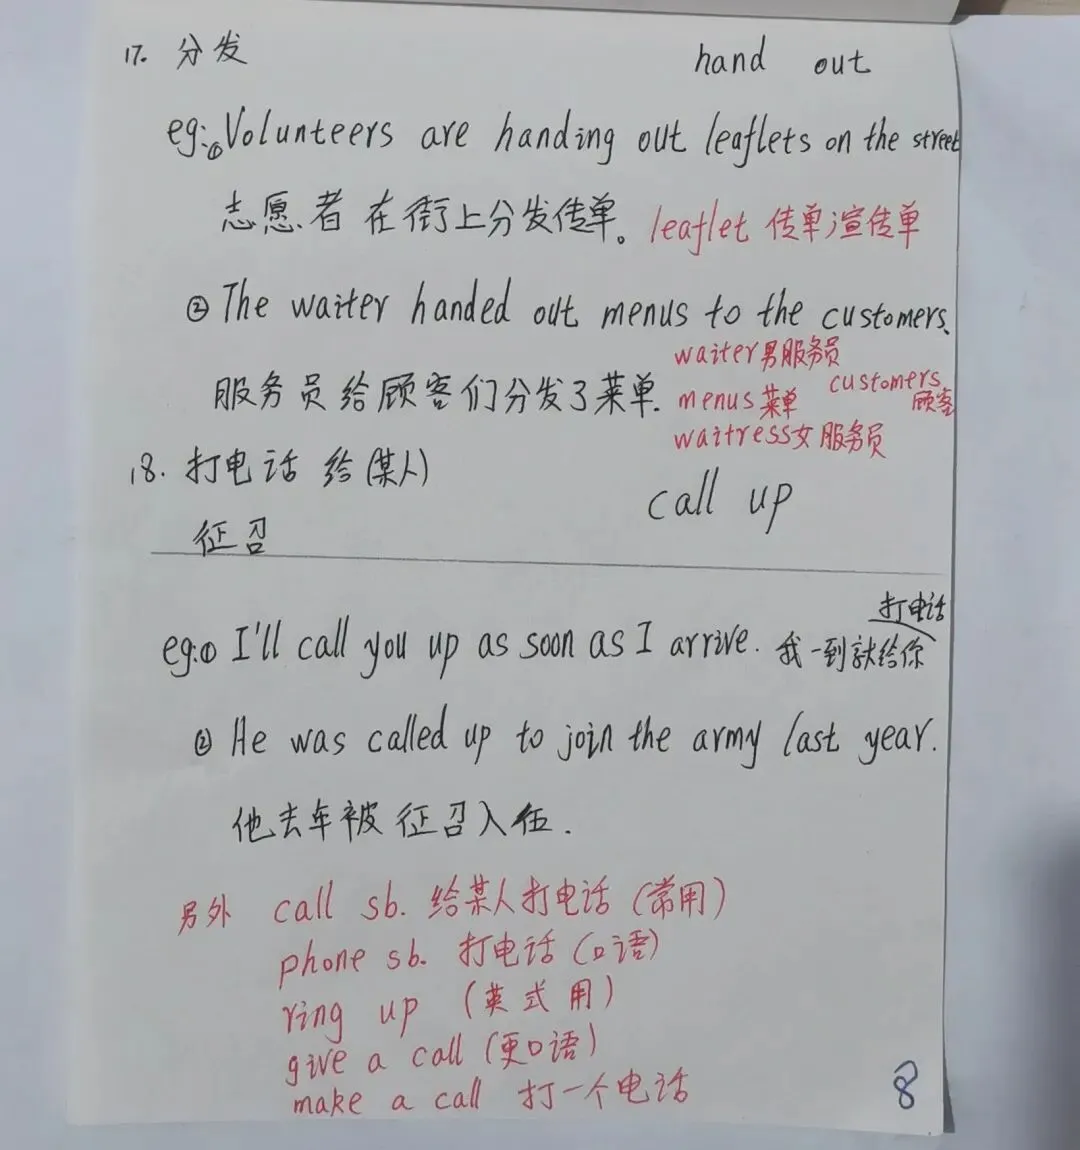 17. 分发 hand out
eg:① Volunteers are handing out leaflets on the street
志愿者在街上分发传单。 leaflet 传单 宣传单
② The waiter handed out menus to the customers.
waiter 男服务员
服务员给顾客们分发了菜单. menus 菜单 customers 顾客
waitress 女服务员
18. 打电话给(某人) call up
征召
打电话
eg:① I'll call you up as soon as I arrive. 我一到就给你
② He was called up to join the army last year.
他去年被征召入伍.
另外 call sb. 给某人打电话 (常用)
phone sb. 打电话 (口语)
ring up (英式用)
give a call (更口语)
make a call 打一个电话
8